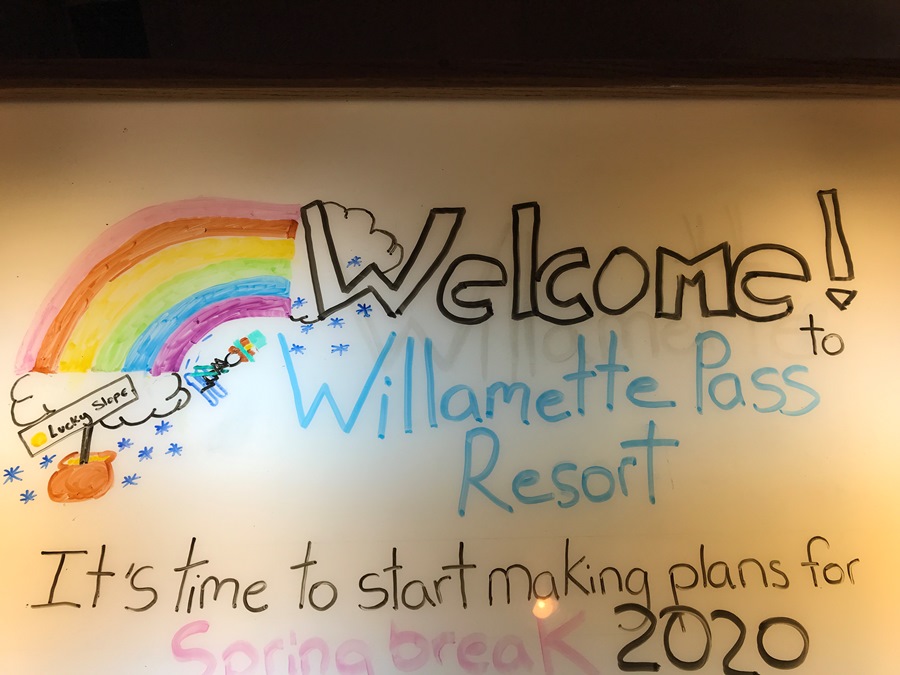 Welcome!
to
Willamette Pass
Resort
Lucky Slope
It's time to start making plans for
Spring break 2020